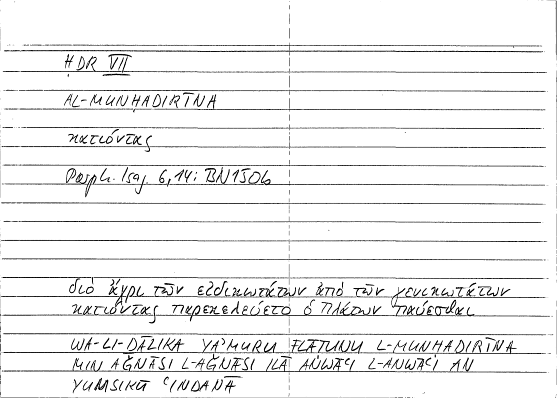 ḤDR VII
AL-MUNḤADIRĪNA
κατιόντας
Porph. Isag. 6,14: BN150b
διὸ ἄχρι τῶν εἰδικωτάτων ἀπὸ τῶν γενικωτάτων
κατιόντας παρεκελεύετο ὁ Πλάτων παύεσθαι
WA-LI-ḎĀLIKA YA'MURU FLĀṬUNU L-MUNḤADIRĪNA
MIN AǦNĀSI L-AǦNĀSI ILĀ ANWĀʿI L-ANWĀʿI AN
YUMSIKŪ ʿINDAHĀ